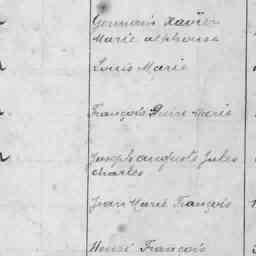 Germain Xavier
Marie alphonse
Louis Marie
François Pierre Marie
Joseph auguste Jules
charles
Jean Marie François
Henri François